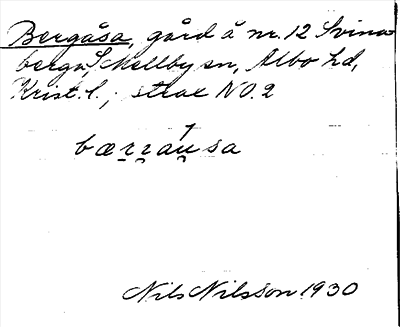 Bergåsa, gård å nr. 12 Svina-
berga, S. Mellby sn, Albo hd,
Krist. l.; strax NO. 2
bærrau̯sa
Nils Nilsson 1930